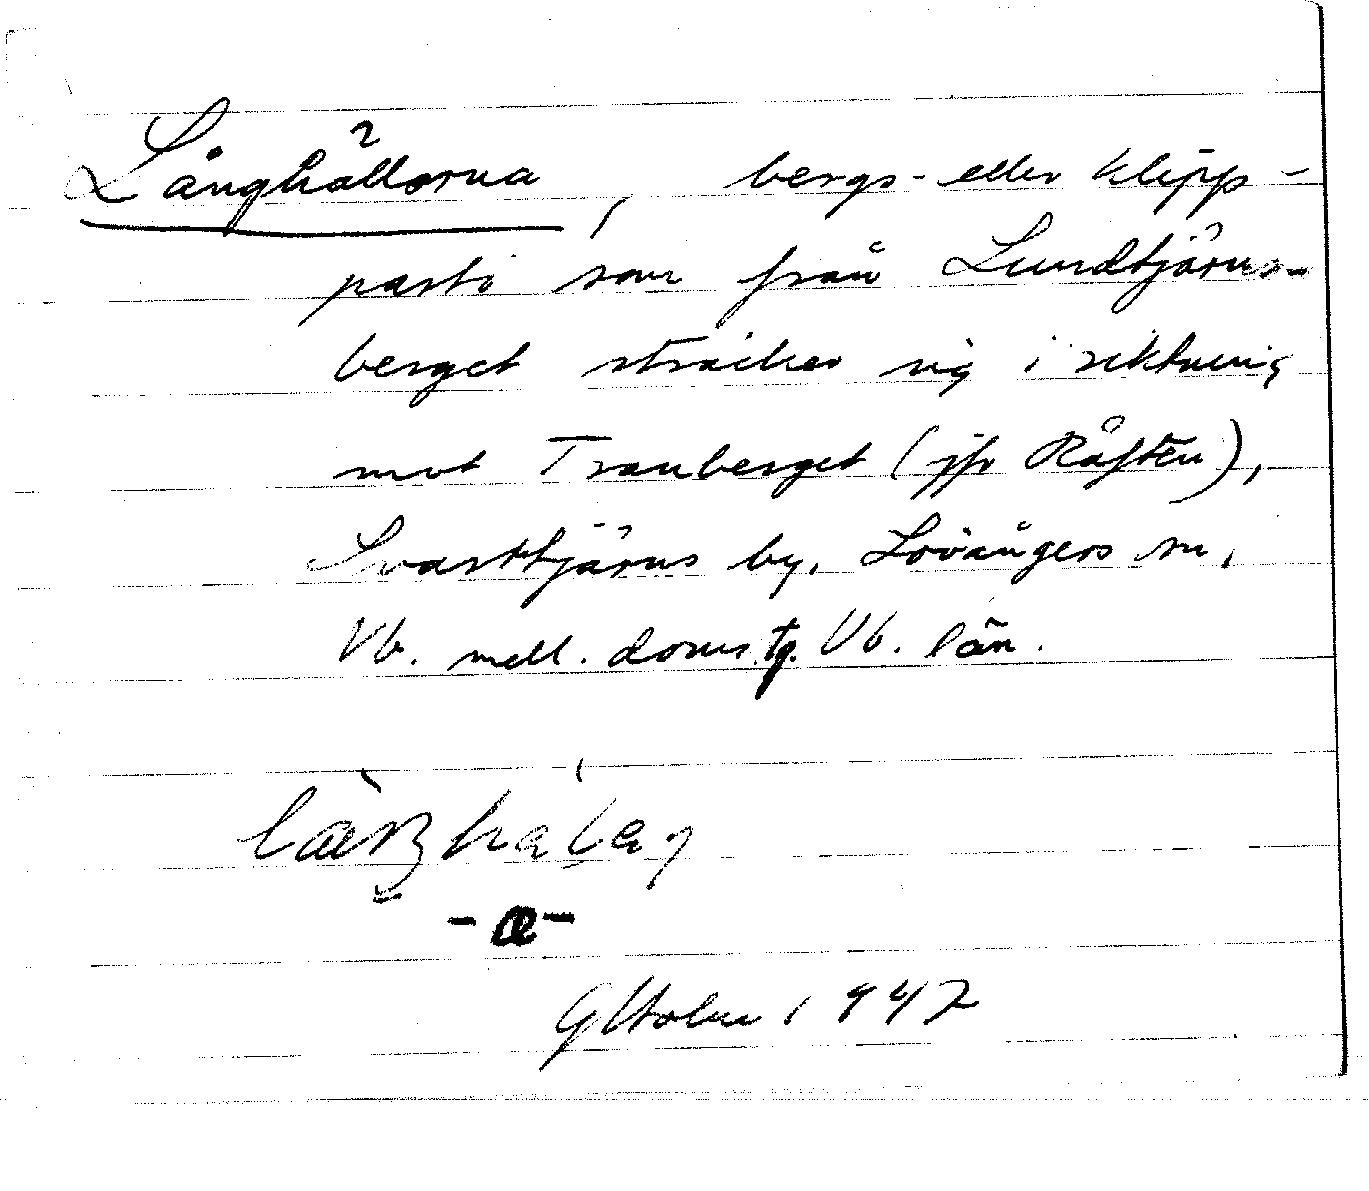 Långhällorna, bergs- eller klipp-
parti som från Lundtjärns-
berget sträcker sig i riktning
mot Tranberget (jfr Råften),
Svarttjärns by, Lövångers sn,
Vb. mell. doms.tg. Vb. län.
-æ-
G Holm 1947